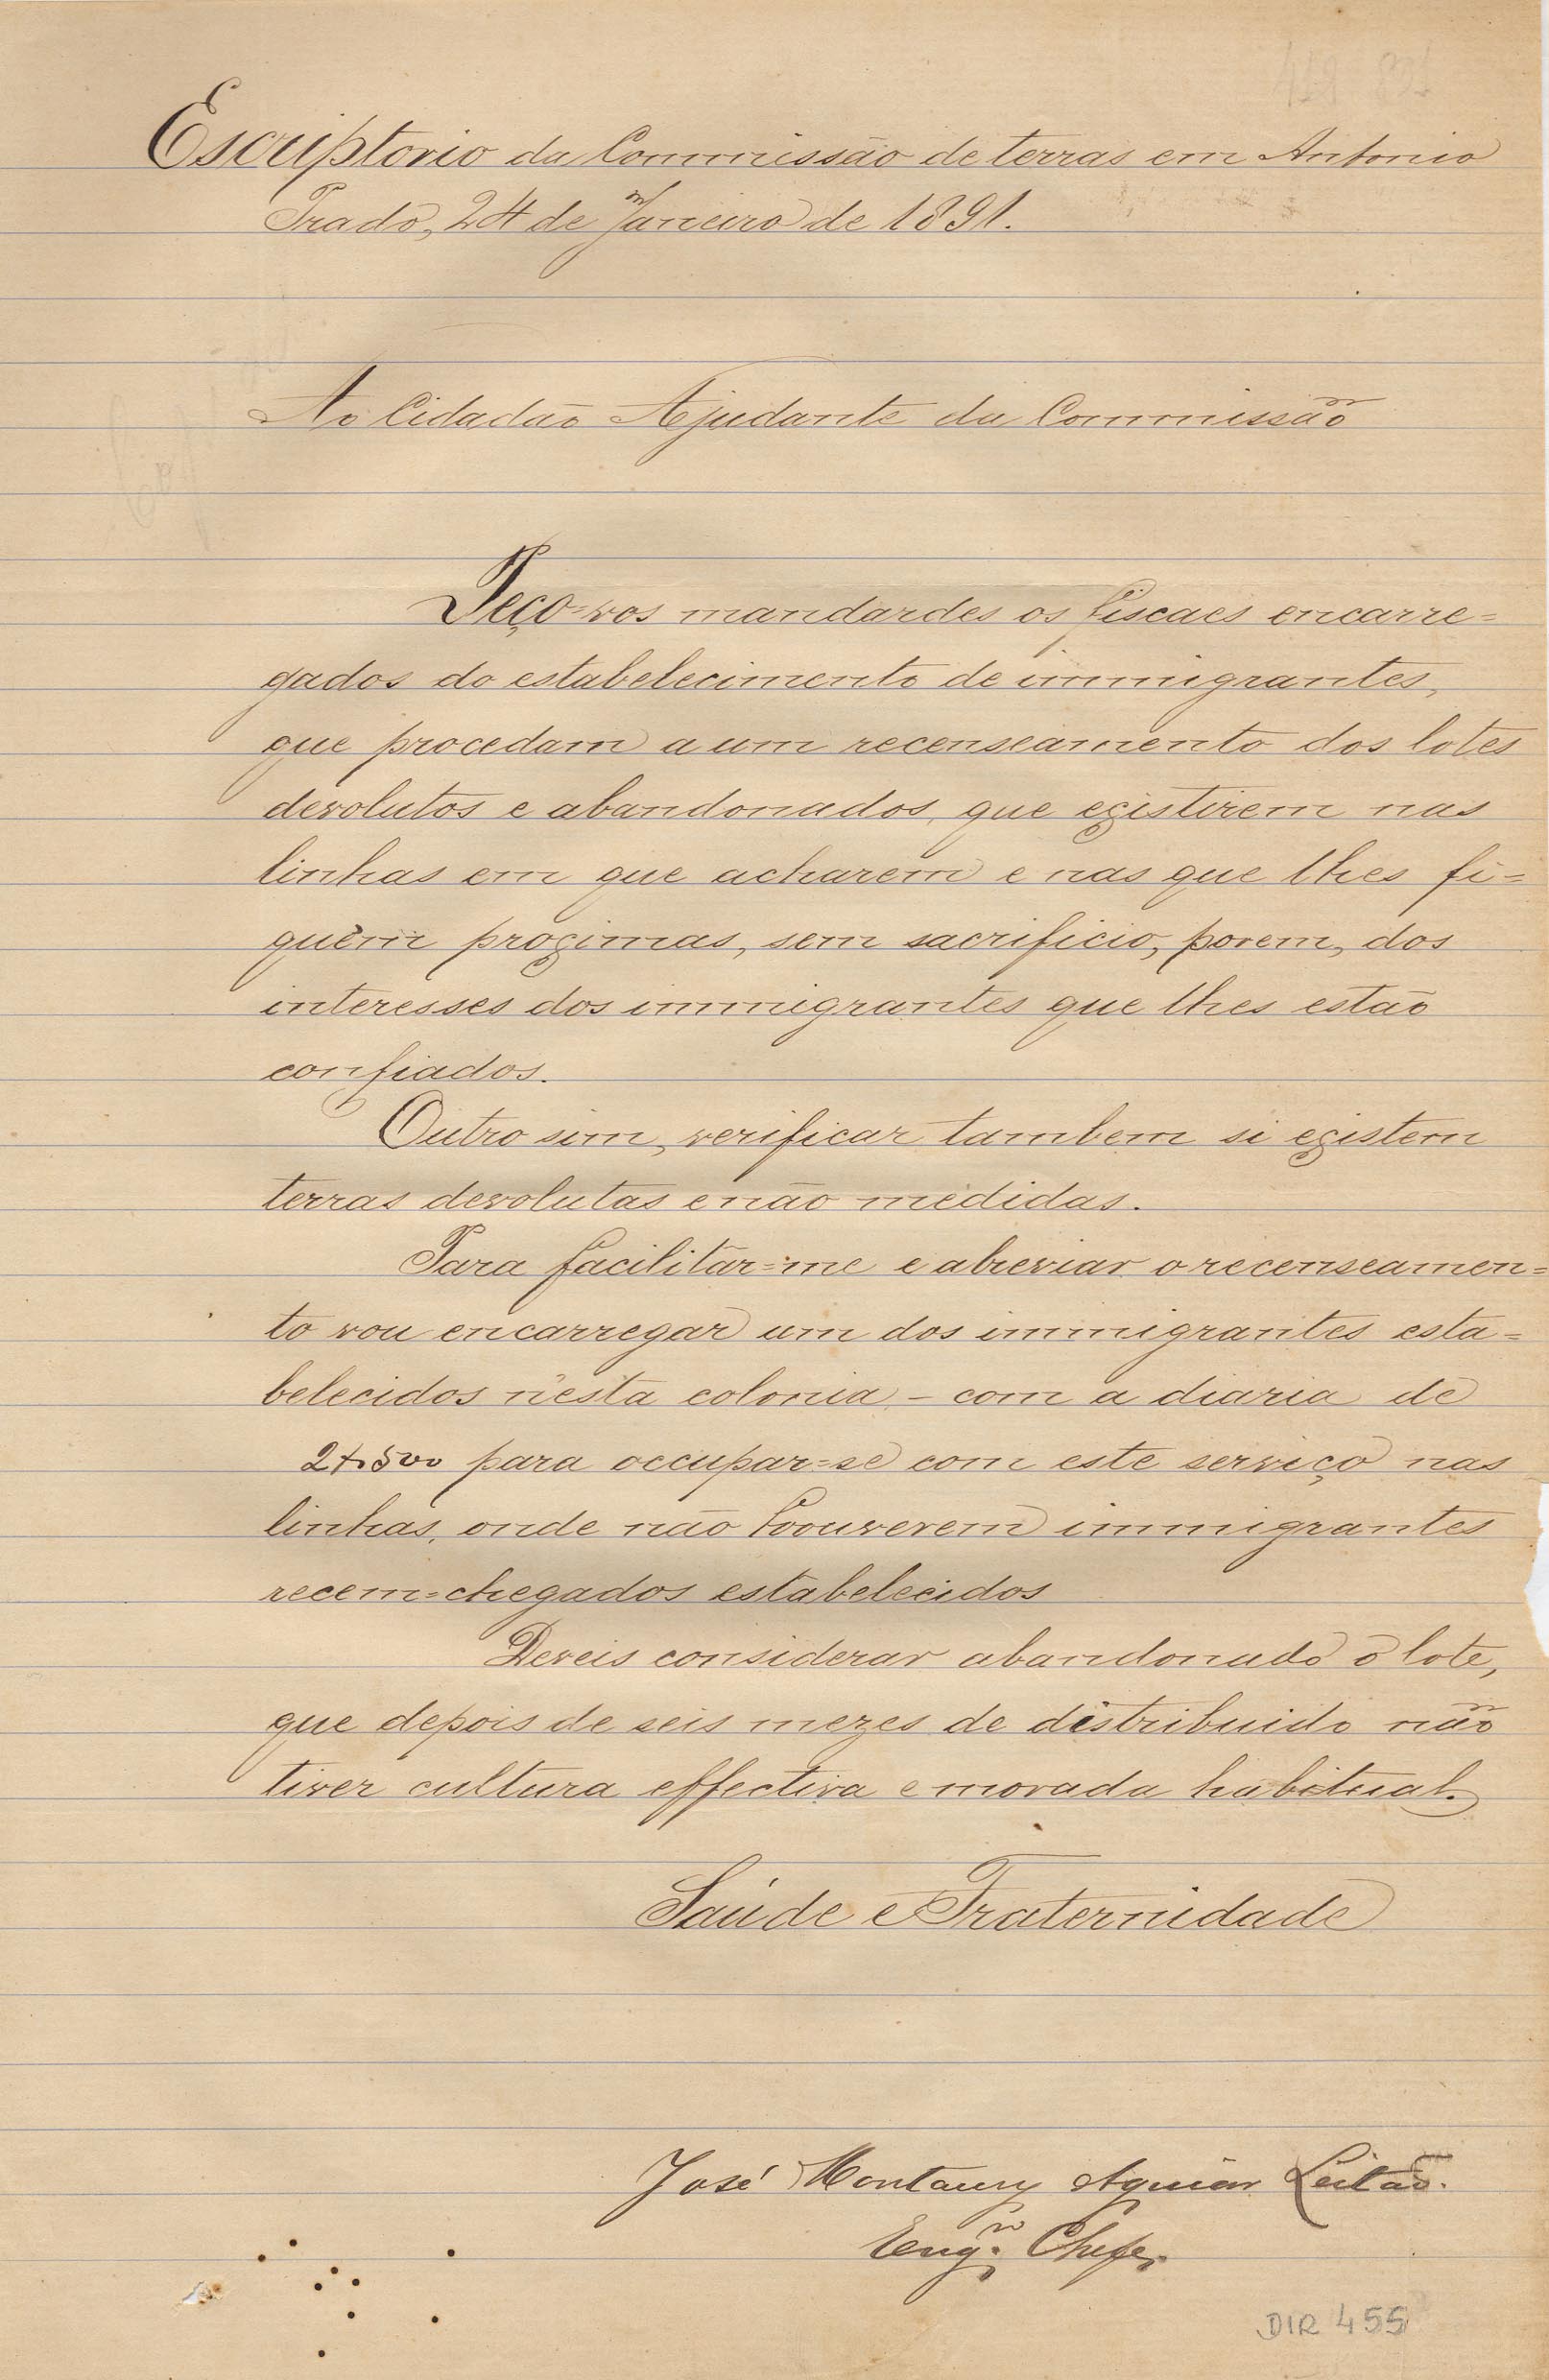 Escriptorio da Commissão de terras em Antonio
Prado, 24 de Janeiro de 1891.
Ao Cidadão Ajudante da Commissão
Peço=vos mandardes os fiscaes encarre=
gados do estabelecimento de immigrantes,
que procedam a um recenseamento dos lotes
devolutos e abandonados, que existirem nas
linhas em que acharem e nas que lhes fi=
quem proximas, sem sacrificio, porem, dos
interesses dos immigrantes que lhes estão
confiados.
Outro sim, verificar tambem si existem
terras devolutas e não medidas.
Para facilitar=me e abreviar o recenseamen=
to vou encarregar um dos immigrantes esta=
belecidos n'esta colonia - com a diaria de
2$500 para occupar=se com este serviço nas
linhas, onde não houverem immigrantes
recem=chegados estabelecidos
Deveis considerar abandonado o lote,
que depois de seis mezes de distribuido não
tiver cultura effectiva e morada habitual.
Saúde e Fraternidade
José Montaury Aguiar Leitão.
Eng.ro Chefe.
DIR 455